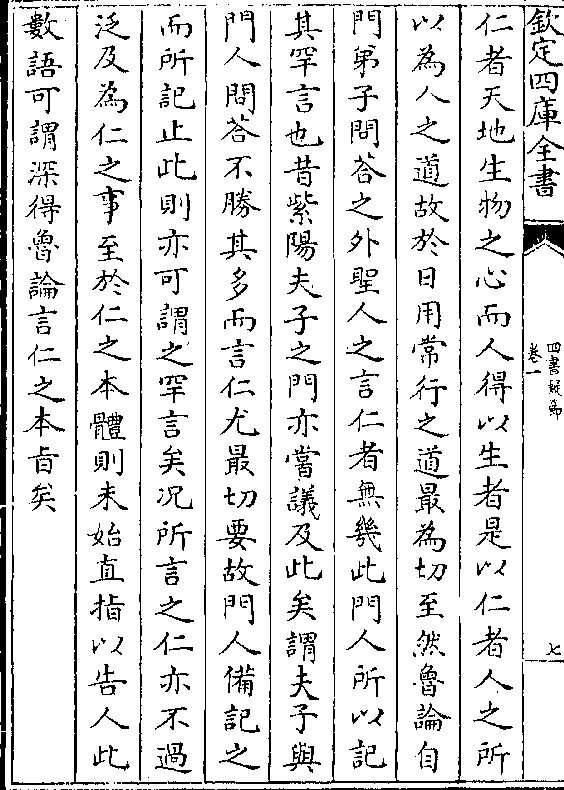 欽定四庫全書
四書疑節
卷一
七
仁者天地生物之心而人得以生者是以仁者人之所
以為人之道故於日用常行之道最為切至然魯論自
門弟子問荅之外聖人之言仁者無幾此門人所以記
其罕言也昔紫陽夫子之門亦嘗議及此矣謂夫子與
門人問荅不勝其多而言仁尤最切要故門人備記之
而所記止此則亦可謂之罕言矣况所言之仁亦不過
泛及為仁之事至於仁之本體則未始直指以告人此
數語可謂深得魯論言仁之本旨矣